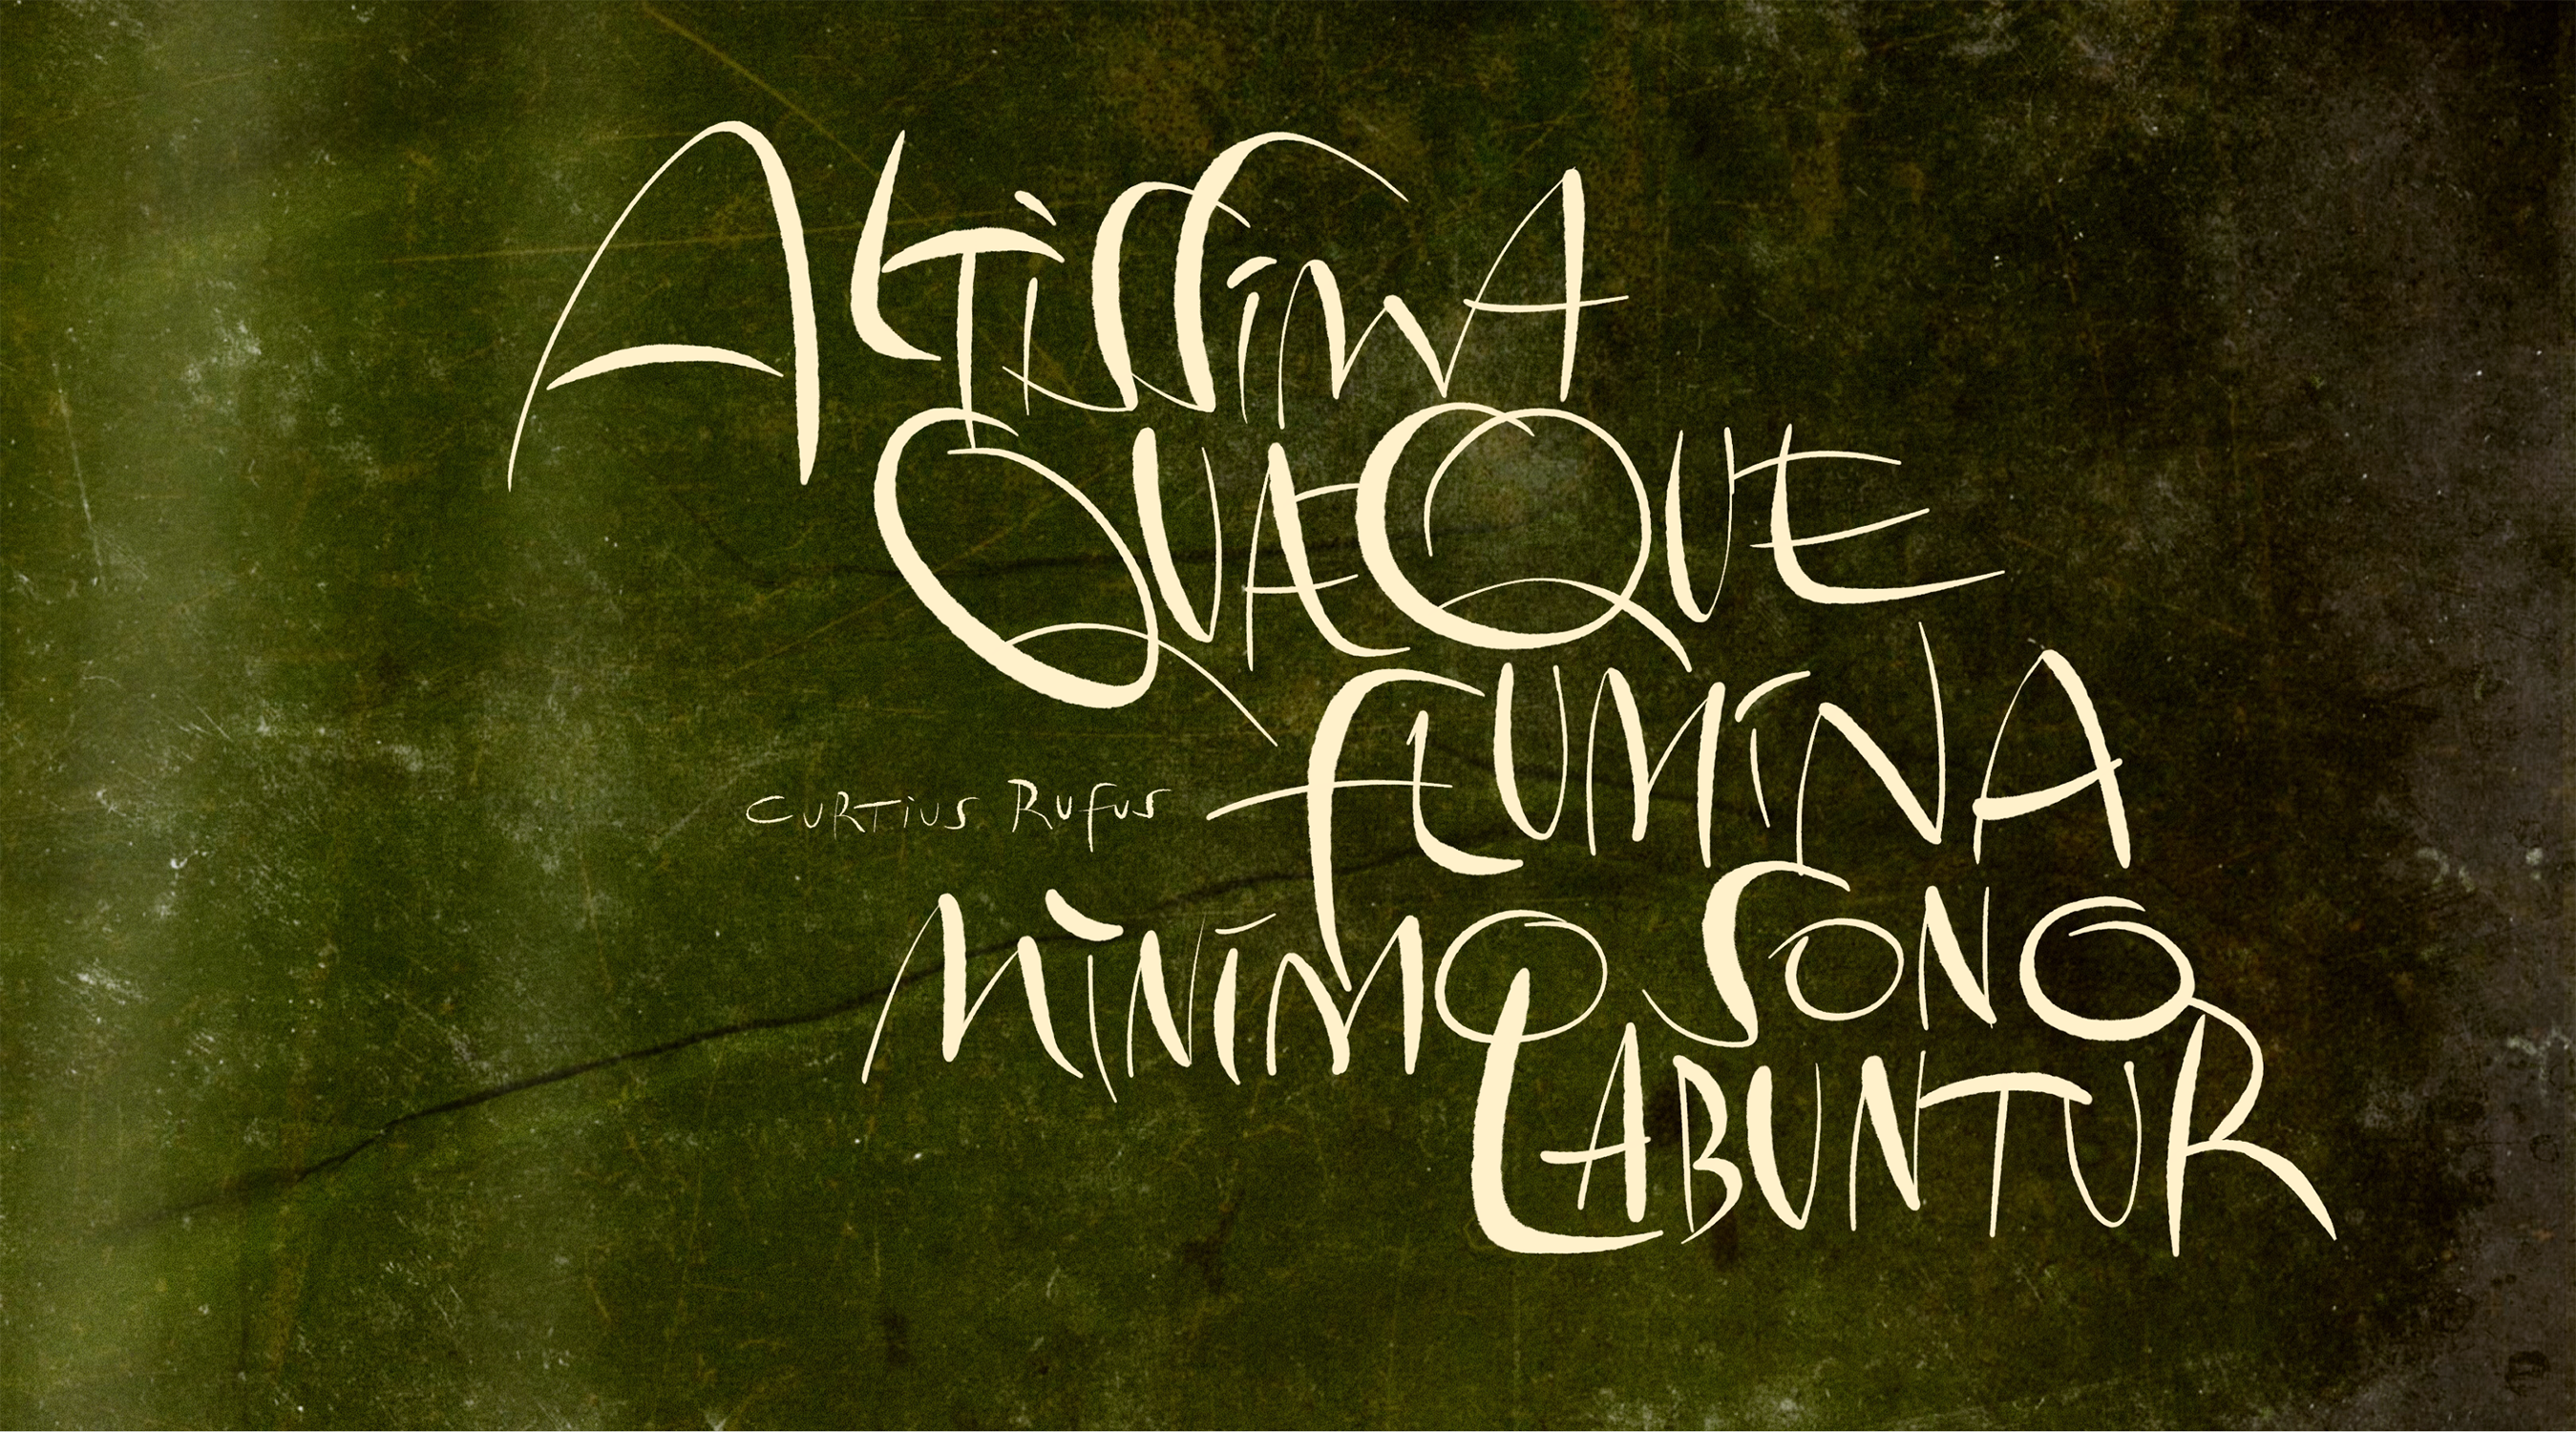 ALTISSIMA
QUAEQUE
FLUMINA
CURTIUS RUFUS
MINIMO SONO
LABUNTUR